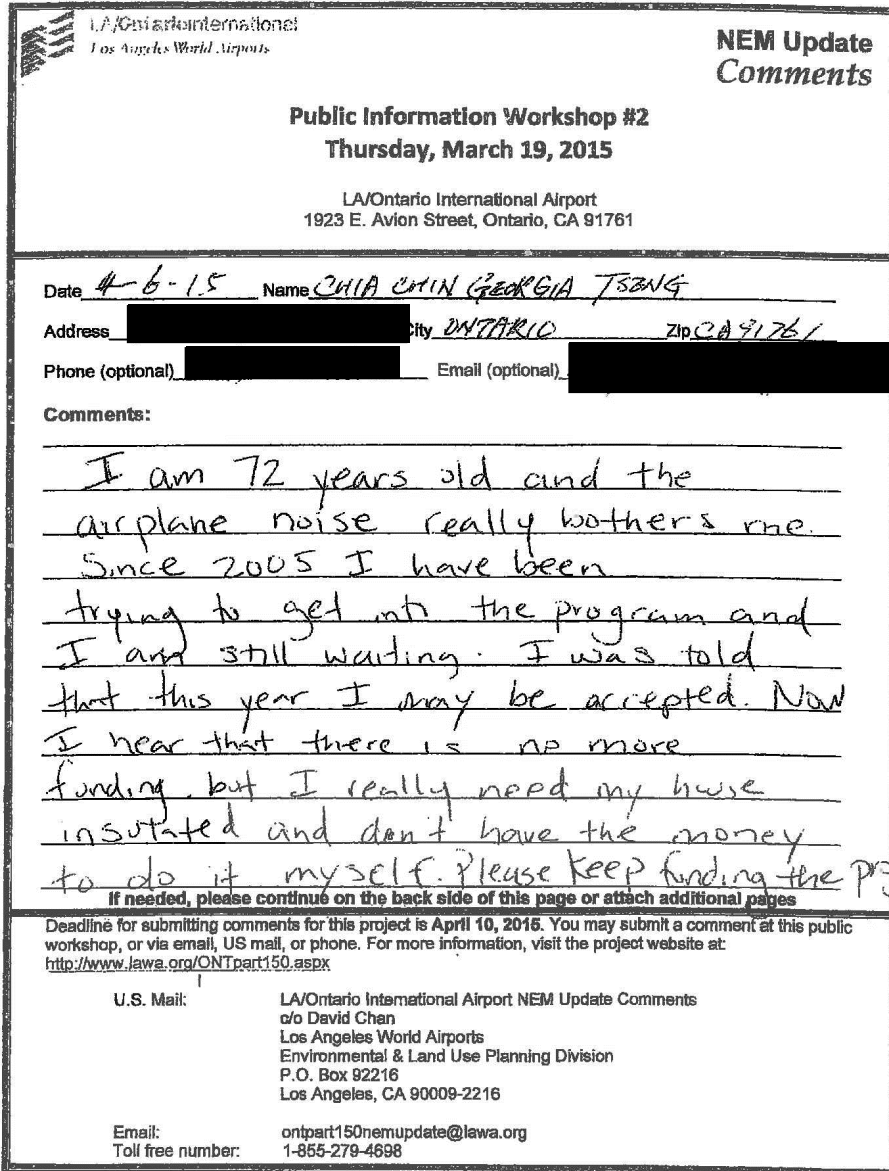 LA/Ontario International
Los Angeles World Airports
NEM Update
Comments
Public Information Workshop #2
Thursday, March 19, 2015
LA/Ontario International Airport
1923 E. Avion Street, Ontario, CA 91761
Date 4-6-15 Name CHIA CHIN GEORGIA TSENG
Address City ONTARIO Zip CA 91761
Phone (optional) Email (optional)
Comments:
I am 72 years old and the
airplane noise really bothers me.
Since 2005 I have been
trying to get into the program and
I am still waiting. I was told
that this year I may be accepted. Now
I hear that there is no more
funding, but I really need my house
insulated and don't have the money
to do it myself. Please keep funding the pro
If needed, please continue on the back side of this page or attach additional pages
Deadline for submitting comments for this project is April 10, 2015. You may submit a comment at this public
workshop, or via email, US mail, or phone. For more information, visit the project website at:
http://www.lawa.org/ONTpart150.aspx
U.S. Mail: LA/Ontario International Airport NEM Update Comments
c/o David Chan
Los Angeles World Airports
Environmental & Land Use Planning Division
P.O. Box 92216
Los Angeles, CA 90009-2216
Email: ontpart150nemupdate@lawa.org
Toll free number: 1-855-279-4698